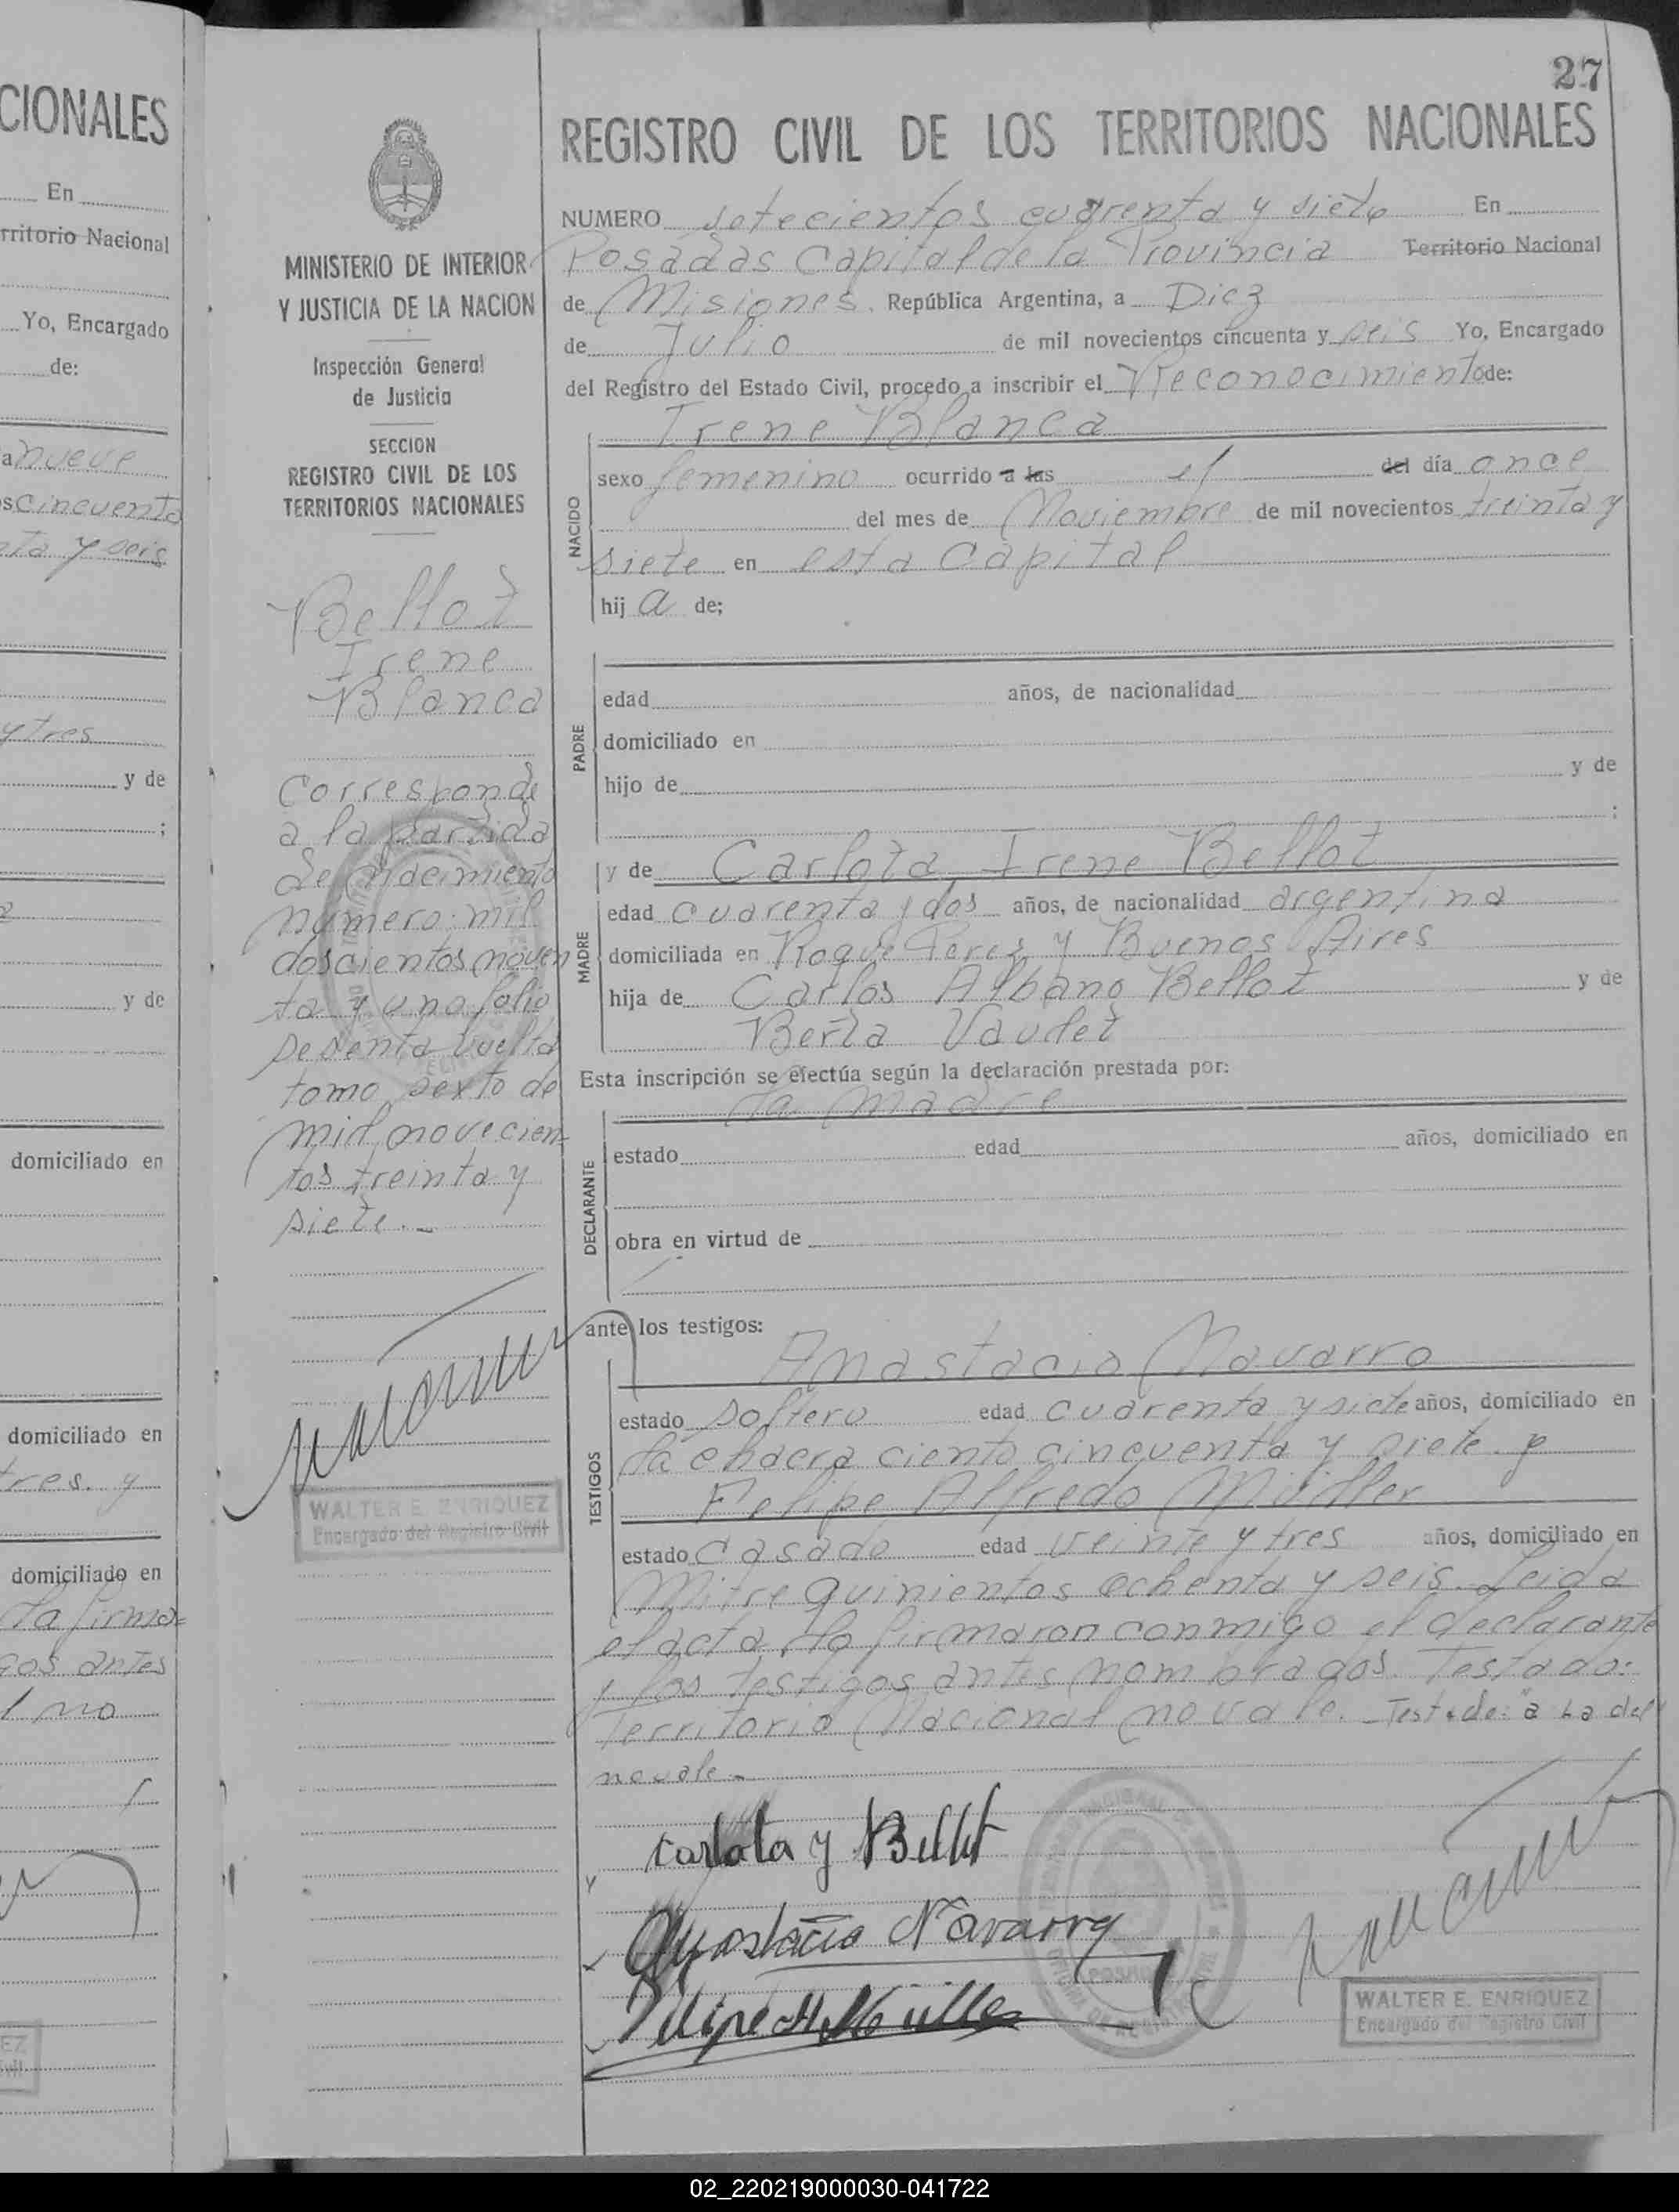 CIONALES
En
rritorio Nacional
Yo, Encargado
de:
a nueve
s cincuenta
ta y seis
y tres
y de
;
y de
domiciliado en
domiciliado en
tres. y
domiciliado en
la firma=
gos antes
l no
EZ
vil
MINISTERIO DE INTERIOR
Y JUSTICIA DE LA NACION
Inspección General
de Justicia
SECCION
REGISTRO CIVIL DE LOS
TERRITORIOS NACIONALES
Bellot
Irene
Blanca
Corresponde
a la partida
de nacimiento
número: mil
doscientos noven
ta y uno folio
sesenta vuelta
tomo sexto de
mil novecien-
tos treinta y
siete.-
WALTER E. ENRIQUEZ
Encargado del Registro Civil
27
REGISTRO CIVIL DE LOS TERRITORIOS NACIONALES
NUMERO setecientos cuarenta y siete En
Posadas Capital de la Provincia Territorio Nacional
de Misiones. República Argentina, a Diez
de Julio de mil novecientos cincuenta y seis Yo, Encargado
del Registro del Estado Civil, procedo a inscribir el Reconocimiento de:
NACIDO
Irene Blanca
sexo femenino ocurrido a las el del día once
del mes de Noviembre de mil novecientos treinta y
siete en esta Capital
hij a de;
PADRE
edad años, de nacionalidad
domiciliado en
hijo de y de
;
MADRE
y de Carlota Irene Bellot
edad cuarenta y dos años, de nacionalidad argentina
domiciliada en Roque Perez y Buenos Aires
hija de Carlos Albano Bellot y de
Berta Vaudet
Esta inscripción se efectúa según la declaración prestada por:
DECLARANTE
la madre
estado edad años, domiciliado en
obra en virtud de
ante los testigos:
TESTIGOS
Anastacio Navarro
estado soltero edad cuarenta y siete años, domiciliado en
la chacra ciento cincuenta y siete. y
Felipe Alfredo Müller
estado casado edad veinte y tres años, domiciliado en
Mitre quinientos ochenta y seis. Leida
el acta, la firmaron conmigo el declarante
y los testigos antes nombrados. Testado:
Territorio Nacional no vale. - Testado: "a la del
no vale -
Carlota y Bellot
Anastacio Navarro
Felipe A. Müller
POSADAS
WALTER E. ENRIQUEZ
Encargado del Registro Civil
02_220219000030-041722